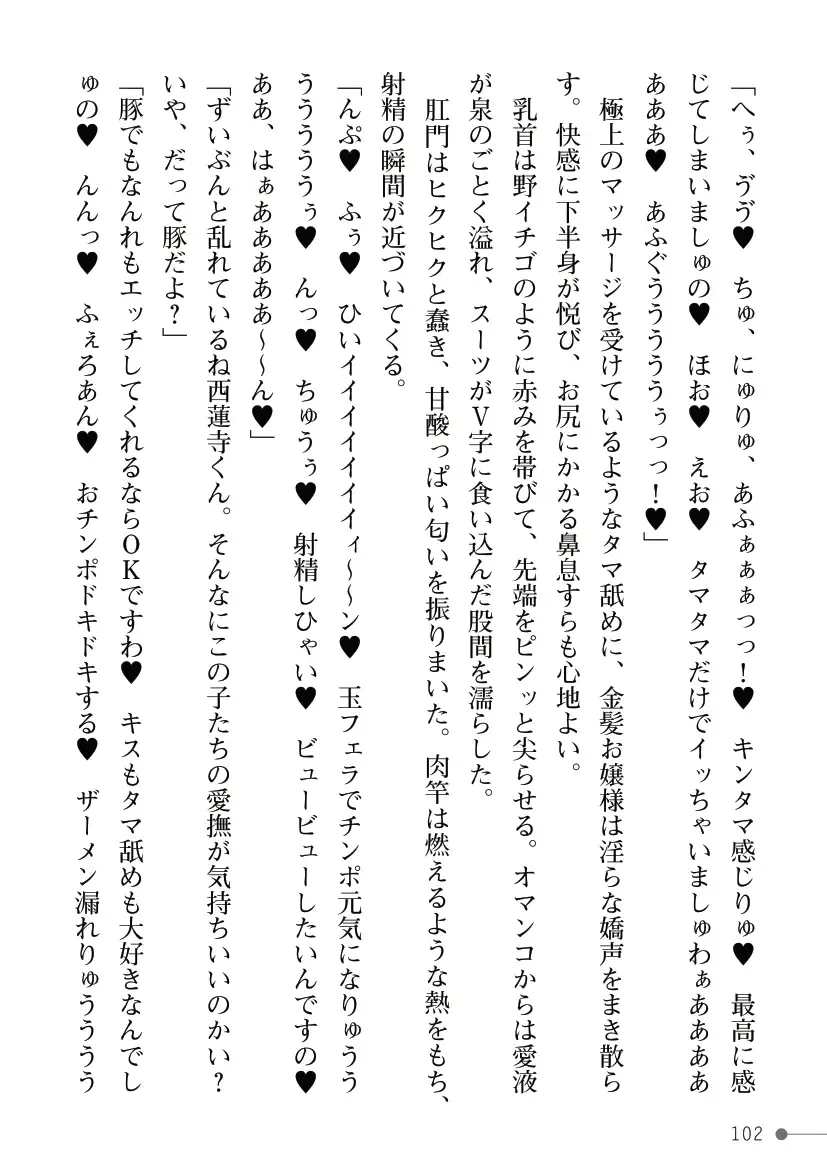 「へぅ、ゔゔ♥　ちゅ、にゅりゅ、あふぁぁぁっっ！♥　キンタマ感じりゅ♥　最高に感
じてしまいましゅの♥　ほお♥　えお♥　タマタマだけでイッちゃいましゅわぁああああ
あああ♥　あふぐうううううぅっっ！♥」
　極上のマッサージを受けているようなタマ舐めに、金髪お嬢様は淫らな嬌声をまき散ら
す。快感に下半身が悦び、お尻にかかる鼻息すらも心地よい。
　乳首は野イチゴのように赤みを帯びて、先端をピンッと尖らせる。オマンコからは愛液
が泉のごとく溢れ、スーツがＶ字に食い込んだ股間を濡らした。
　肛門はヒクヒクと蠢き、甘酸っぱい匂いを振りまいた。肉竿は燃えるような熱をもち、
射精の瞬間が近づいてくる。
「んぷ♥　ふぅ♥　ひいイイイイイイイィ～～ン♥　玉フェラでチンポ元気になりゅうう
うううううぅ♥　んっ♥　ちゅうぅ♥　射精しひゃい♥　ビュービューしたいんですの♥
ああ、はぁああああああ～～ん♥」
「ずいぶんと乱れているね西蓮寺くん。そんなにこの子たちの愛撫が気持ちいいのかい？
いや、だって豚だよ？」
「豚でもなんれもエッチしてくれるならＯＫですわ♥　キスもタマ舐めも大好きなんでし
ゅの♥　んんっ♥　ふぇろあん♥　おチンポドキドキする♥　ザーメン漏れりゅうううう
102